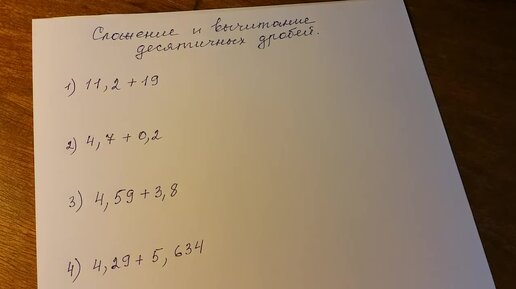 Сложение и вычитание
десятичных дробей.
1) 11,2 + 19
2) 4,7 + 0,2
3) 4,59 + 3,8
4) 4,29 + 5,634